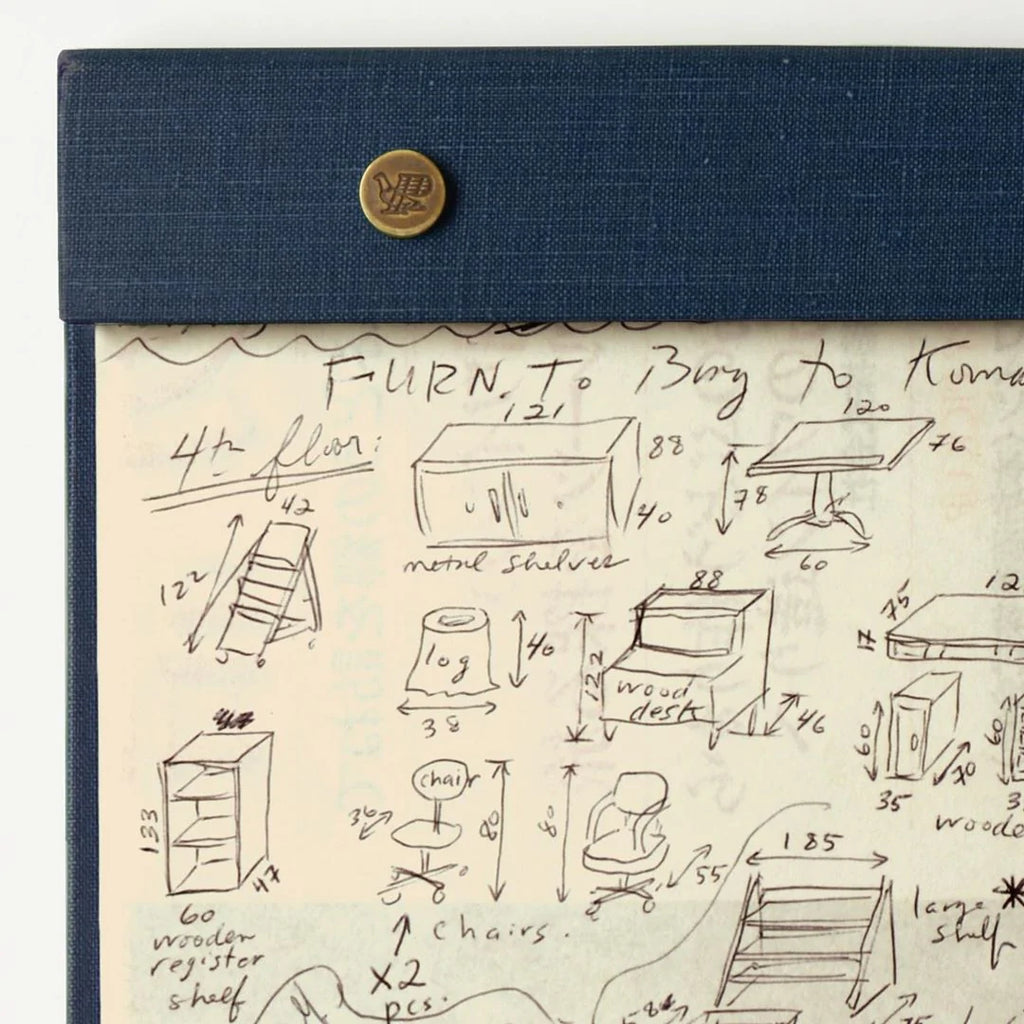 FURN. To Buy to
4th floor:
121
88
40
metal shelves
120
76
78
60
42
122
log
40
38
88
122
wood
desk
46
75
17
60
35
70
60
133
47
60
wooden
register
shelf
chair
36
80
chairs.
X2
pcs.
80
55
185
large
shelf